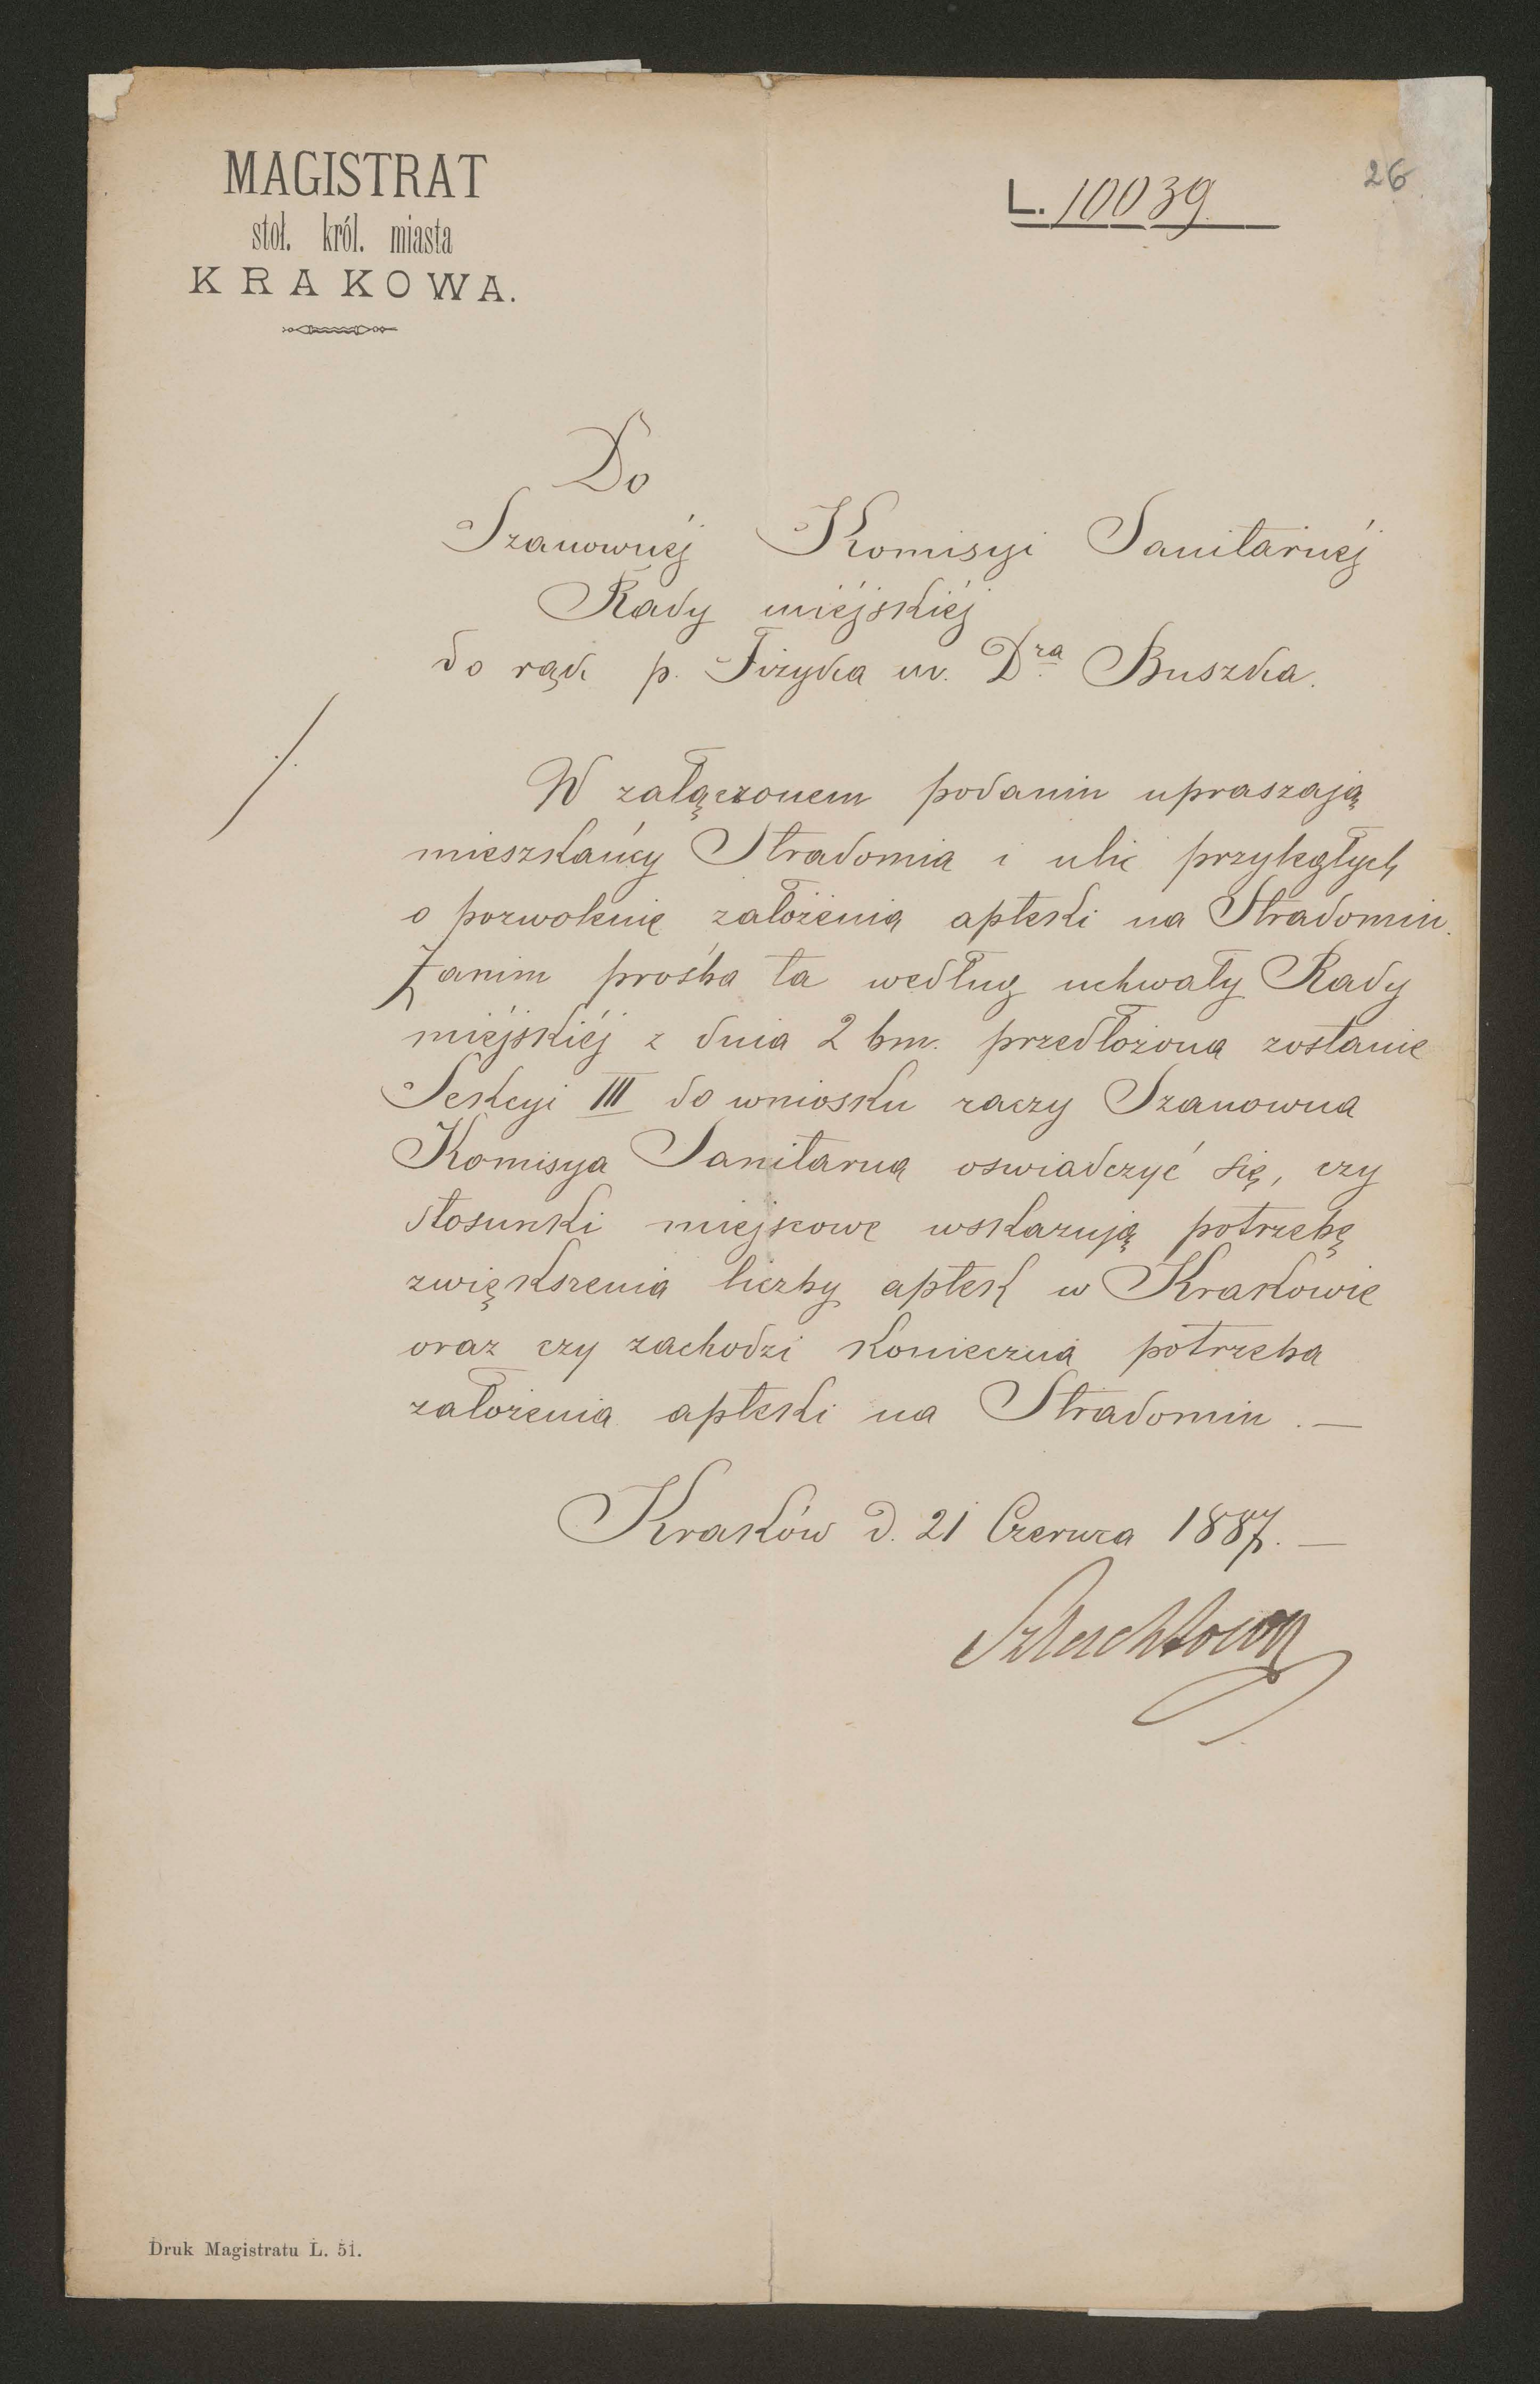 MAGISTRAT
stoł. król. miasta
KRAKOWA.
L. 10039.
26
Do
Szanownéj Komisyi Sanitarnéj
Rady miéjskiéj
do rąk p. Fizyka m. Dra Buszka.
./.
W załączonem podaniu upraszają
mieszkańcy Stradomia i ulic przyległych
o pozwolenie założenia apteki na Stradomiu.
Zanim prośba ta według uchwały Rady
miéjskiéj z dnia 2 bm. przedłożona zostanie
Sekcyi III do wniosku raczy Szanowna
Komisya Sanitarna oswiadczyć się, czy
stosunki miejscowe wskazują potrzebę
zwiększenia liczby aptek w Krakowie
oraz czy zachodzi konieczna potrzeba
założenia apteki na Stradomiu. —
Kraków d. 21 Czerwca 1887. —
Szlachtowski
Druk Magistratu L. 51.